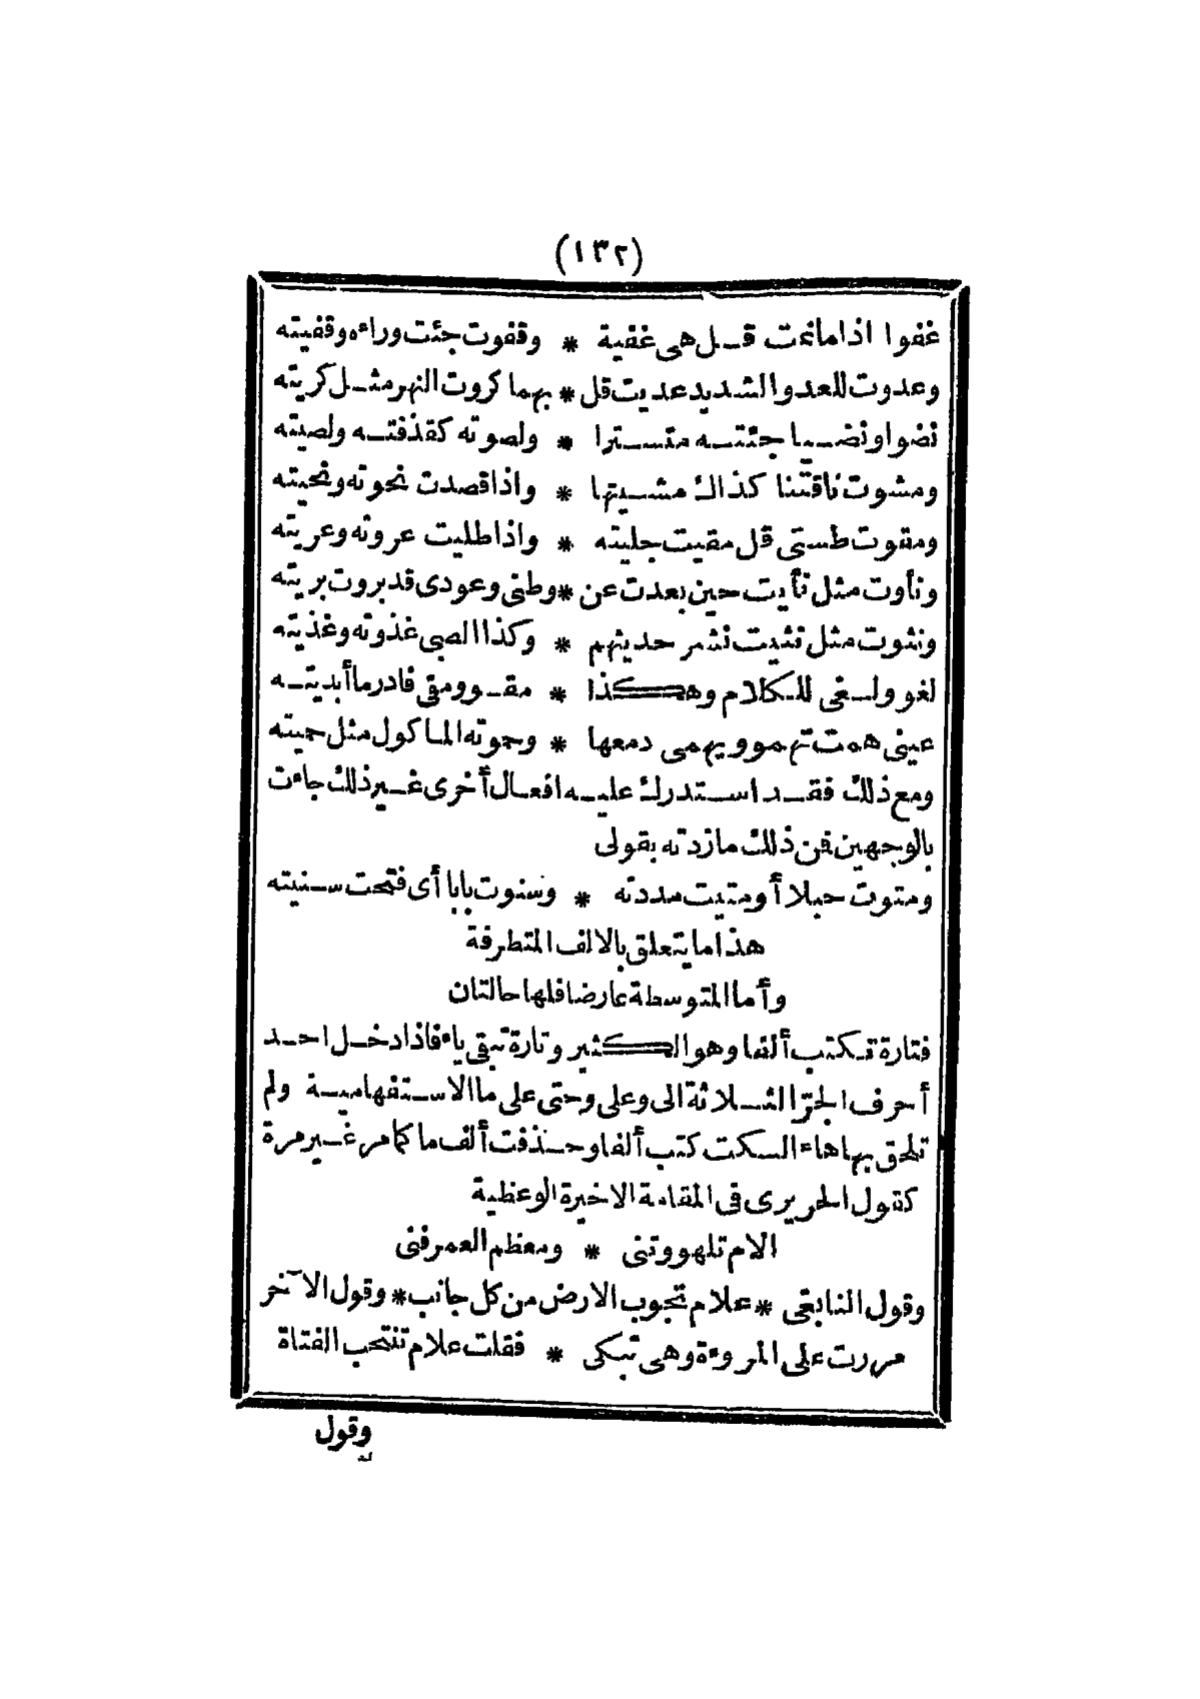 (١٣٢)
غفوا اذا مانمت قل هى غفية * وقفوت جئت وراءه وقفيته
وعدوت للعدو الشديد عديت قل * بهما كروت النهر مثل كريته
نضوا ونضيا جئته متسترا * ولصوته كقذفته ولصيته
ومشوت ناقتنا كذاك مشيتها * واذا قصدت نحوته ونحيته
ومقوت طستى قل مقيت جليته * واذا طليت عروته وعريته
ونأوت مثل نأيت حين بعدت عن * وطنى وعودى قد بروت بريته
ونثوت مثل نثيت نشر حديثهم * وكذا الصبى غذوته وغذيته
لغو ولغى للكلام وهكذا * مقو ومقى فادر ما أبديته
عينى همت تهمو ويهمى دمعها * وحموته الماكول مثل حميته
ومع ذلك فقد استدرك عليه افعال أخرى غير ذلك جاءت
بالوجهين فن ذلك مازدته بقولى
ومتوت حبلا أو متيت مددته * وسنوت بابا أى فتحت سنيته
هذا ما يتعلق بالالف المتطرفة
وأما المتوسطة عارضا فلها حالتان
فتارة تكتب ألفا وهو الكثير وتارة تبقى ياء فاذا دخل احد
أحرف الجرّ الثلاثة الى وعلى وحتى على ما الاستفهامية ولم
تلحق بها هاء السكت كتب ألفا وحذفت ألف ما كما مر غير مرة
كقول الحريرى فى المقامة الاخيرة الوعظية
الام تلهو وتنى * ومعظم العمر فنى
وقول النابغى * علام تجوب الارض من كل جانب * وقول الآخر
مررت على المروءة وهى تبكى * فقلت علام تنتحب الفتاة
وقول